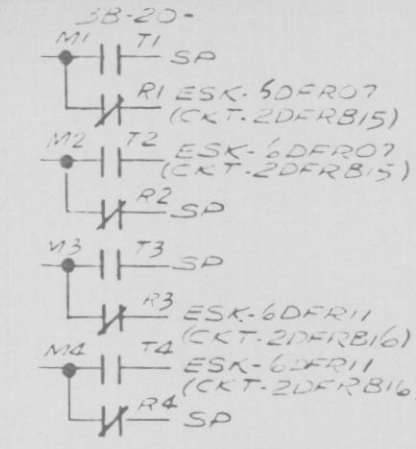 3B-20-
M1 T1 SP
R1 ESK-6DFR07
(CKT-2DFRB15)
M2 T2 ESK-6DFR07
(CKT-2DFRB15)
R2 SP
M3 T3 SP
R3 ESK-6DFR11
(CKT-2DFRB16)
M4 T4 ESK-6DFR11
(CKT-2DFRB16)
R4 SP